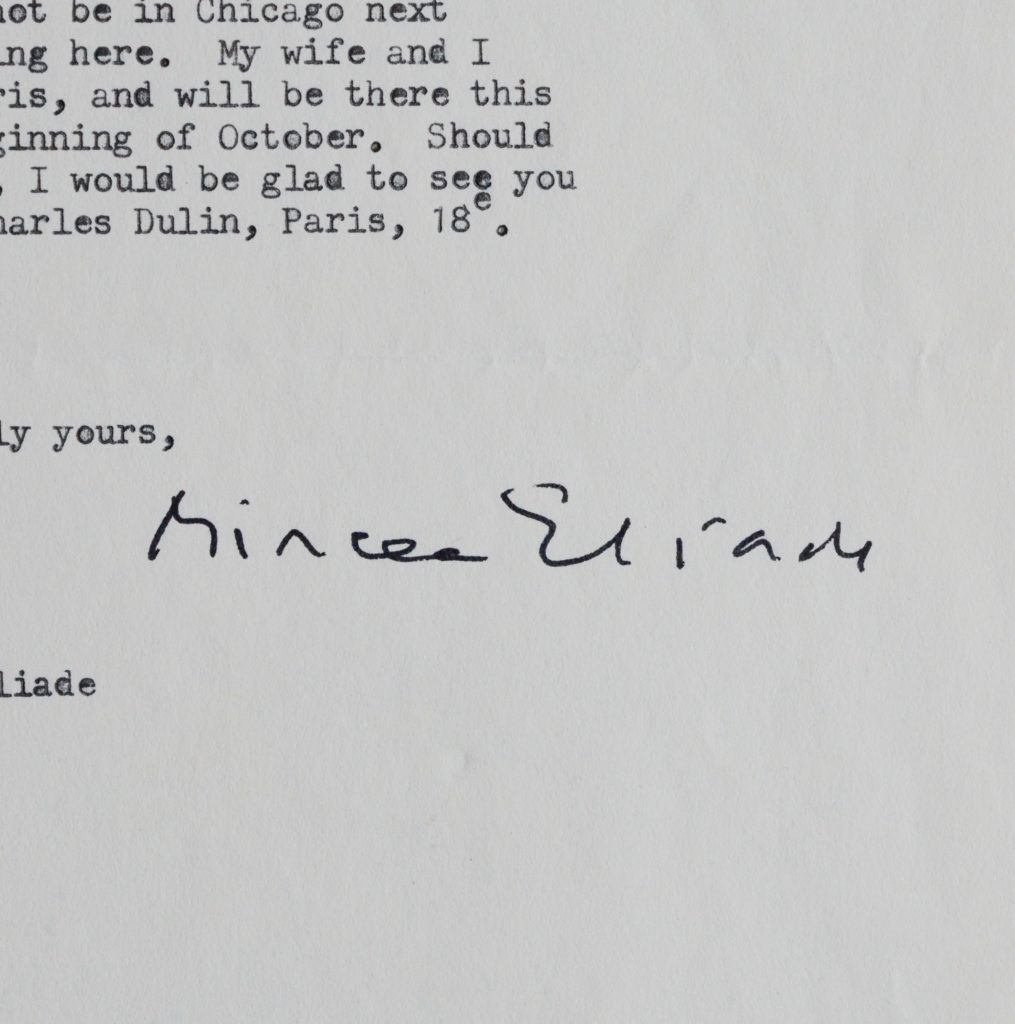 not be in Chicago next
ing here. My wife and I
ris, and will be there this
ginning of October. Should
, I would be glad to see you
harles Dulin, Paris, 18e.
ly yours,
Mircea Eliade
liade